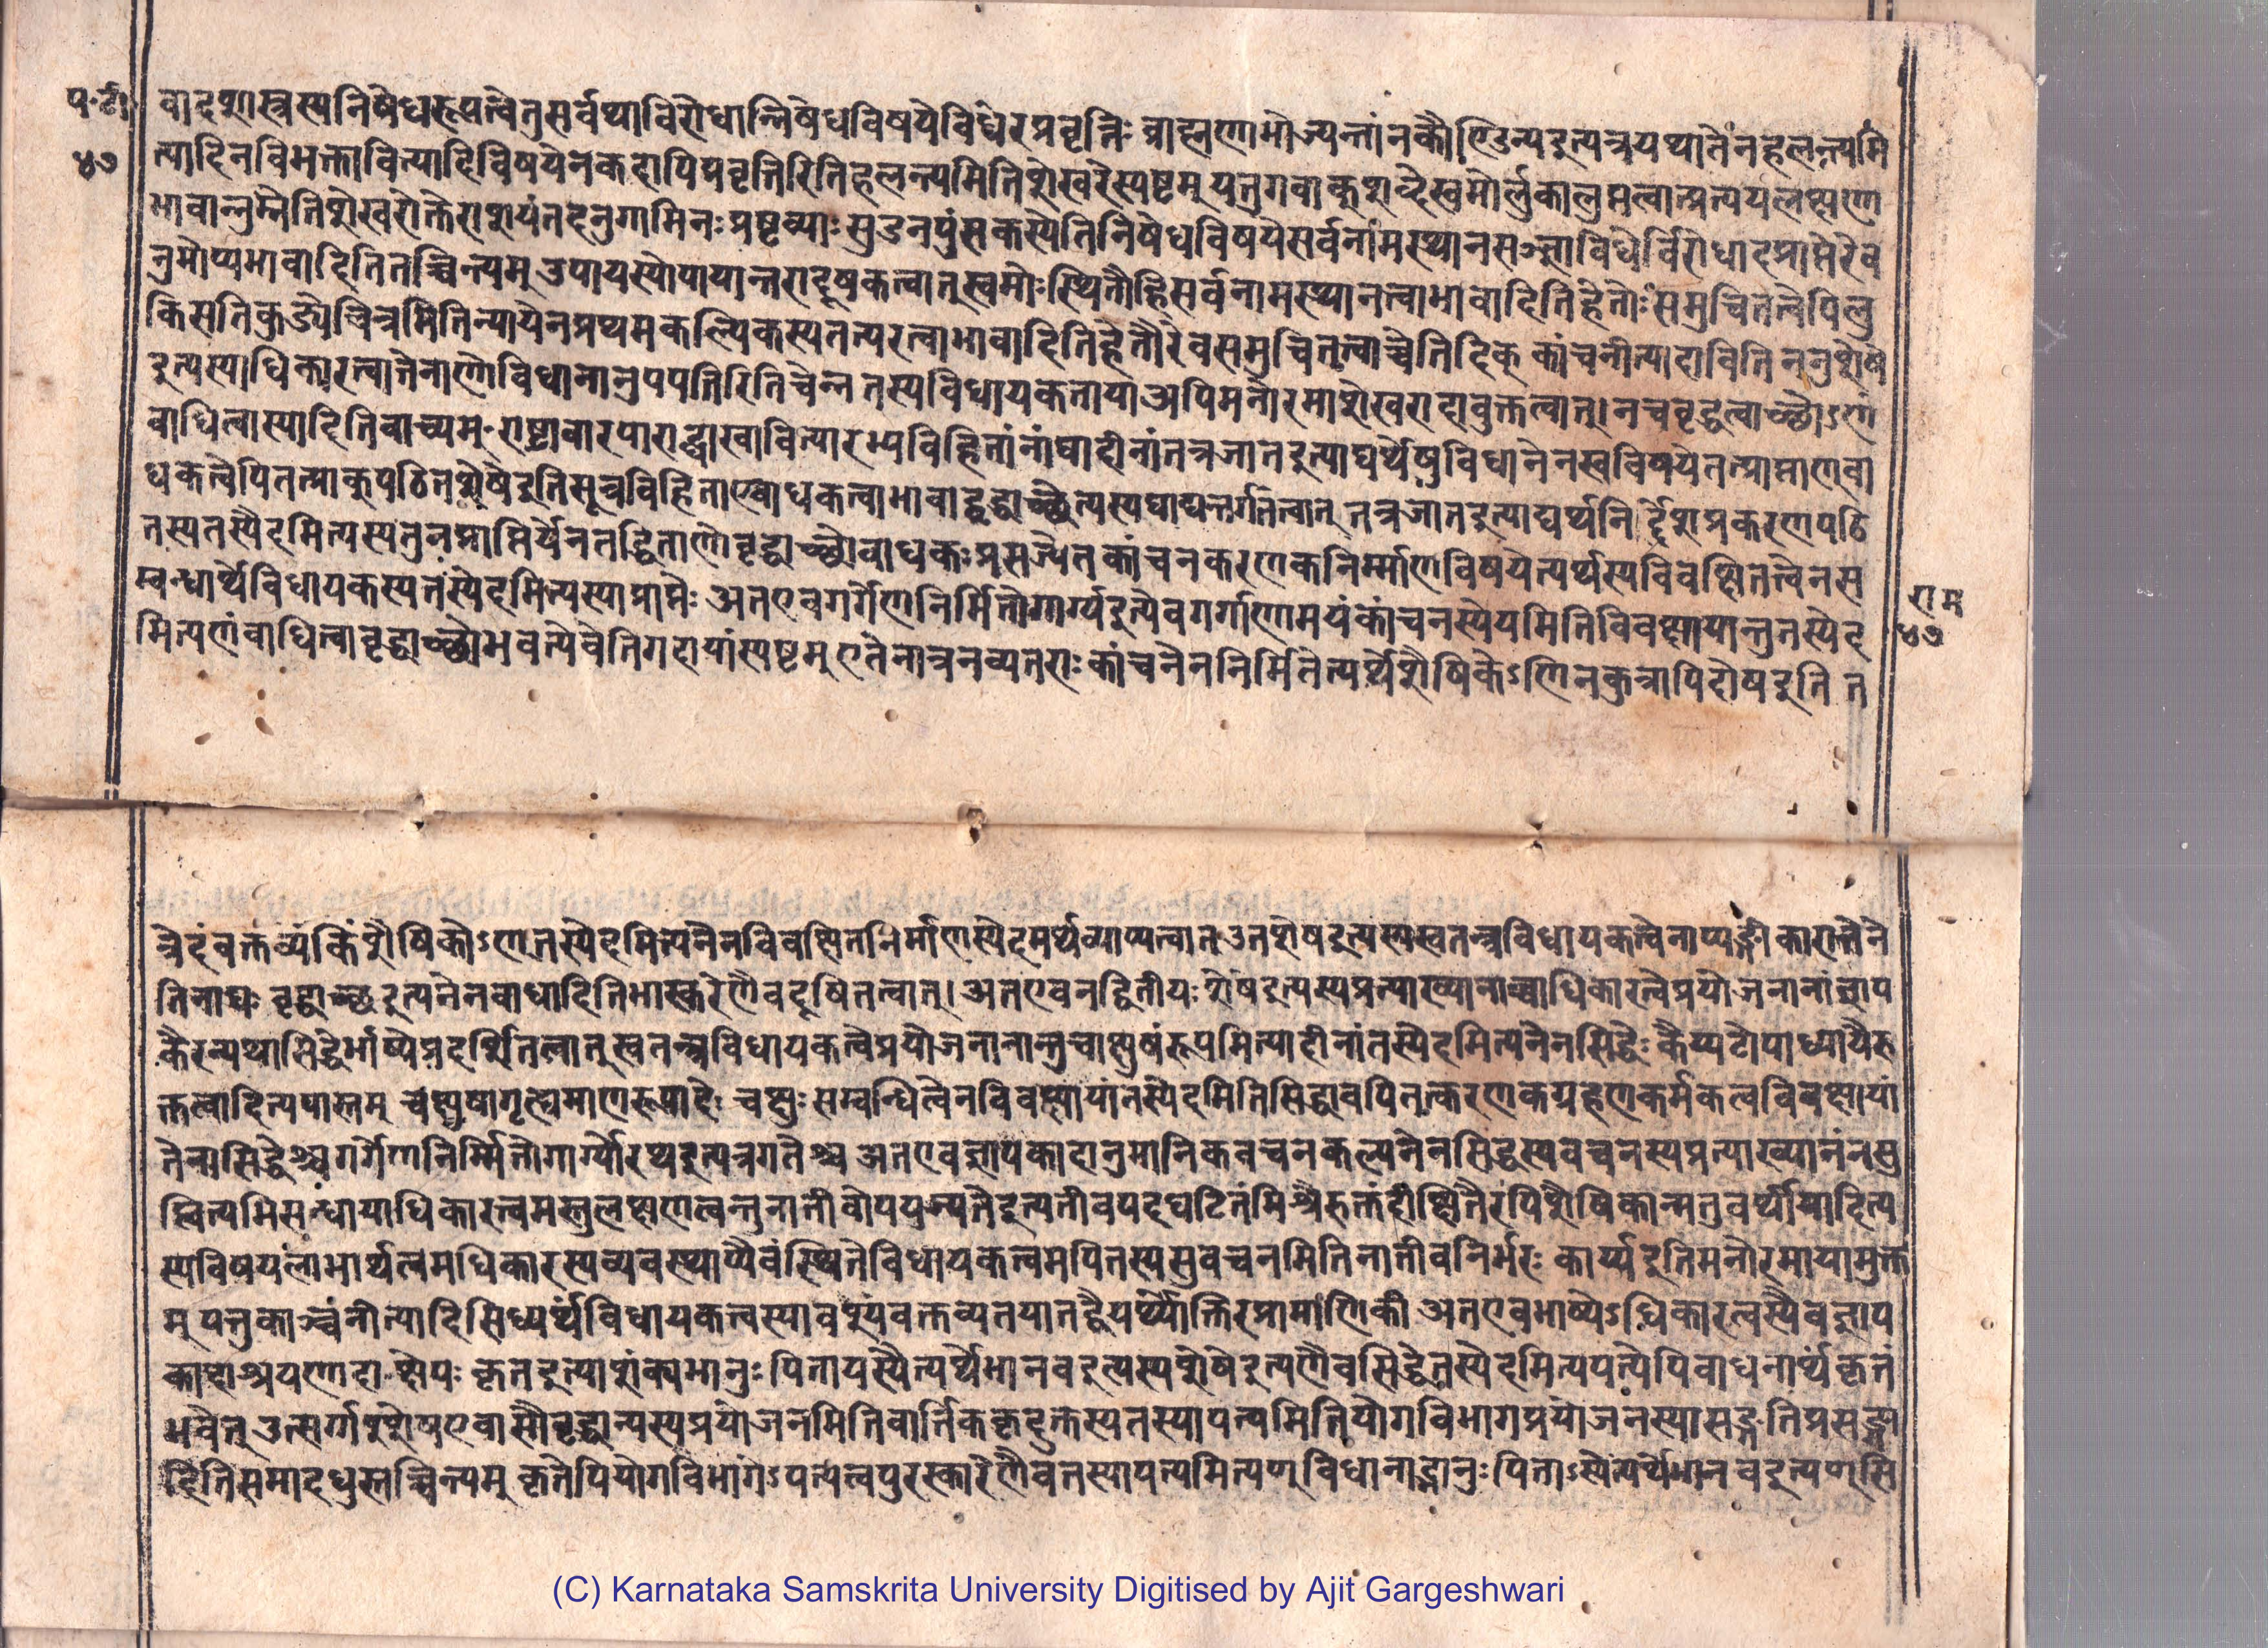 प॰टी॰
४७
वादशास्त्रस्यनिषेधरूपत्वेतुसर्वथाविरोधान्निषेधविषयेविधेरप्रवृत्तिः ब्राह्मणाभोज्यन्तांनकौण्डिन्यइत्यत्रयथातेनहलन्त्यमि
त्यादिनविभक्तावित्यादिविषयेनकदापिप्रवृत्तिरितिहलन्त्यमितिशेखरेस्पष्टम् यत्तुगवाक्शब्देस्वमोर्लुकालुप्तत्वात्प्रत्ययलक्षणा
भावान्नुम्नेतिशेखरोक्तेराशयंतदनुगामिनः प्रष्टव्याः सुडनपुंसकस्येतिनिषेधविषयेसर्वनामस्थानसञ्ज्ञाविधेर्विरोधादप्राप्तेरेव
नुमोप्यभावादितितच्चिन्त्यम् उपायस्योपायान्तरादूषकत्वात् स्वमोःस्थितौहिसर्वनामस्थानत्वाभावादितिहेतोःसमुचितत्वेपिलु
किसतिकुड्येचित्रमितिन्यायेनप्रथमकल्पिकस्यतत्परत्वाभावादितिहेतोरेवसमुचितत्वाच्चेतिदिक् कांचनीत्यादावितिननुशेष
इत्यस्याधिकारत्वात्तेनाणोविधानानुपपत्तिरितिचेन्न तस्यविधायकतायाअपिमनोरमाशेखरादावुक्तत्वात्। नचवृद्धत्वाच्छोऽणं
बाधित्वास्यादितिवाच्यम् राष्ट्रावारपाराद्घखावित्यारभ्यविहितानांघादीनांतत्रजातइत्याद्यर्थेषुविधानेनस्वविषयेतत्प्राप्ताण्बा
धकत्वेपितत्प्राक्पठितशेषइतिसूत्रविहिताण्बाधकत्वाभावाद्वृद्धाच्छेत्यस्यघाद्यन्तर्गतत्वात् तत्रजातइत्याद्यर्थनिर्द्देशप्रकरणपठि
तस्यतस्येदमित्यस्यतुनप्राप्तिर्येनतद्धिताणोवृद्धाच्छोबाधकःप्रसज्येत कांचनकरणकनिर्म्माणविषयेत्यर्थस्यविवक्षितत्वेनस
म्बन्धार्थेविधायकस्यतस्येदमित्यस्याप्राप्तेः अतएवगर्गेणनिर्मितोगार्ग्यइत्येवगर्गाणामयंकांचनस्येयमितिविवक्षायान्तुतस्येद
मित्यणंबाधित्वावृद्धाच्छोभवत्येवेतिगदायांस्पष्टम् एतेनात्रनव्यतराः कांचनेननिर्मितेत्यर्थेशैषिकेऽणिनकुत्रापिदोषइति त
राम
४७
त्रेदंवक्तव्यंकिंशैषिकोऽण्तस्येदमित्यनेनविवक्षितनिर्माणस्येदमर्थव्याप्यत्वात् उतशेषइत्यस्यस्वतन्त्रविधायकत्वेनाप्यङ्गीकारात्तेने
तिनाद्यः वृद्धाच्छइत्यनेनबाधादितिभास्करेणैवदूषितत्वात्। अतएवनद्वितीयः शेषइत्यस्यप्रत्याख्यानाच्चाधिकारत्वेप्रयोजनानांज्ञाप
कैरन्यथासिद्धेर्भाष्येप्रदर्शितत्वात् स्वतन्त्रविधायकत्वेप्रयोजनानान्तुचाक्षुषंरूपमित्यादीनांतस्येदमित्यनेनसिद्धेः कैय्यटोपाध्यायैरु
क्तत्वादित्यपास्तम् चक्षुषागृह्यमाणेरूपादेः चक्षुः सम्बन्धित्वेनविवक्षायांतस्येदमितिसिद्धावपितत्करणकग्रहणकर्मकत्वविवक्षायां
तेनासिद्धेश्च गर्गेणनिर्म्मितोगार्ग्योरथइत्यत्रगतेश्च अतएवज्ञापकादानुमानिकवचनकल्पनेनसिद्धस्यवचनस्यप्रत्याख्यानंनसु
ष्ठ्वित्यभिसंन्धायाधिकारत्वमस्तुलक्षणत्वन्तुनातीवोपयुज्यतेइत्यतीवपदघटितंमिश्रैरुक्तंदीक्षितैरपिशैषिकान्मतुबर्थीयादित्य
स्यविषयलाभार्थत्वमधिकारस्यव्यवस्थाप्यैवंस्थितेविधायकत्वमपितस्यसुवचनमितिनातीवनिर्भरः कार्य्यइतिमनोरमायामुक्त
म् यत्तुकाञ्चनीत्यादिसिध्यर्थंविधायकत्वस्यावश्यंवक्तव्यतयातद्वैयर्थ्योक्तिरप्रामाणिकी अतएवभाष्येऽधिकारत्वस्यैवज्ञाप
काद्याश्रयणेदाक्षेपः कृतइत्याशंक्यभानुः पितायस्येत्यर्थेभानवइत्यस्यशेषइत्यणैवसिद्धेतस्येदमित्यपत्येपिबाधनार्थंकृतं
भवेत् उत्सर्गःशेषएवासौवृद्धान्यस्यप्रयोजनमितिवार्त्तिककृदुक्तस्यतस्यापत्यमितियोगविभागप्रयोजनस्यासङ्गतिप्रसङ्गा
दितिसमादधुस्तच्चिन्त्यम् कृतेपियोगविभागेऽपत्यत्वपुरस्कारेणैवतस्यापत्यमित्यण् विधानाद्भानुः पिताऽस्येत्यर्थेभानवइत्यण्सि
(C) Karnataka Samskrita University Digitised by Ajit Gargeshwari